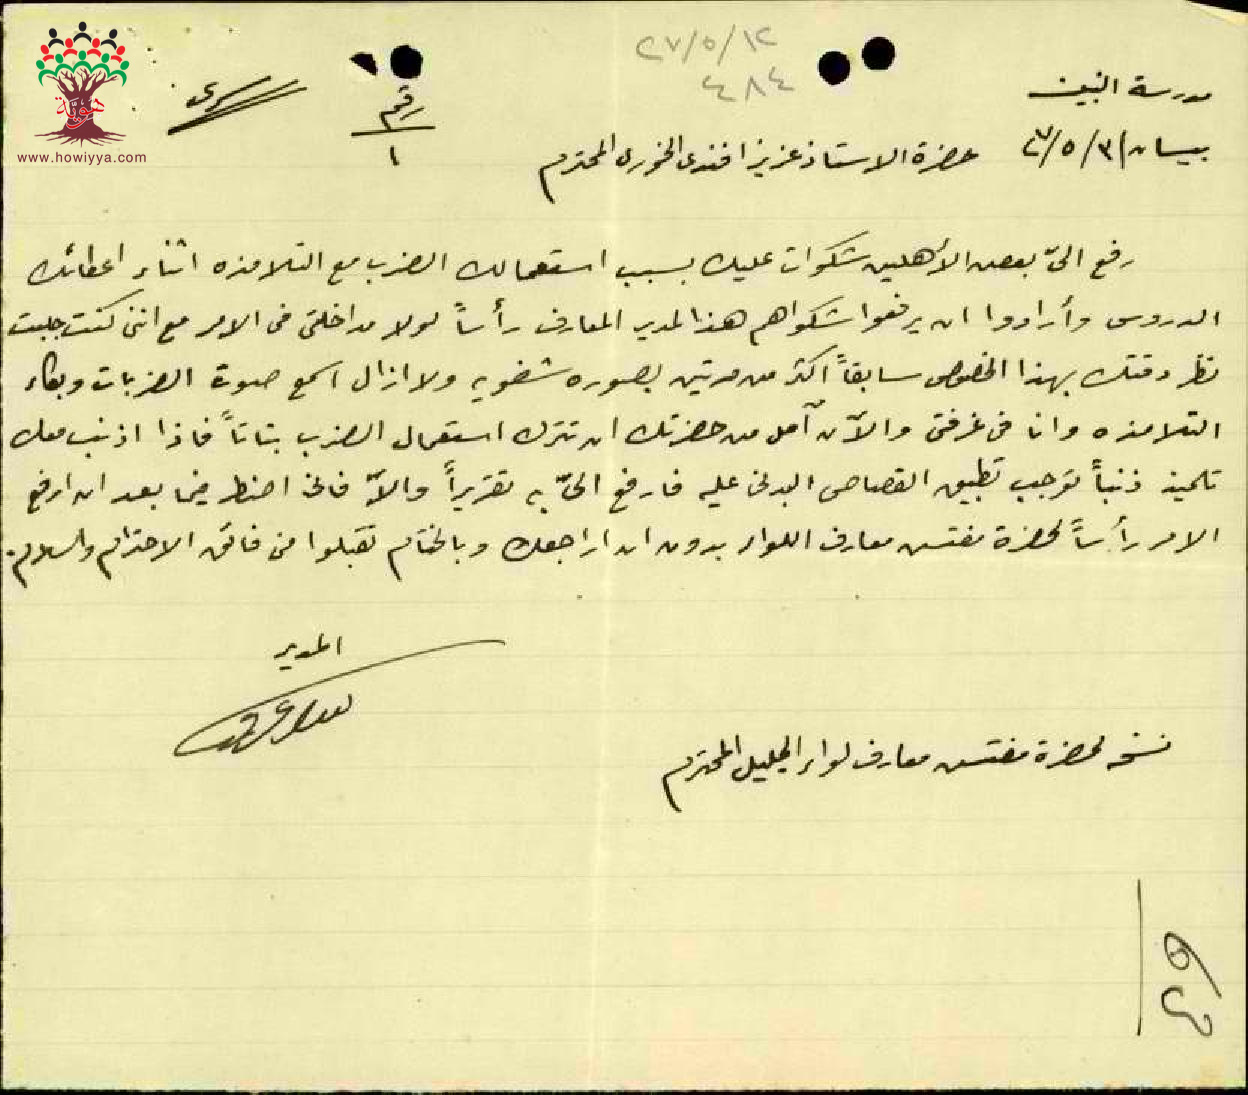 هوية
www.howiyya.com
سري
رقم
١
٢٧/٥/١٢
٤٨٤
مدرسة البنين
بيسان ٣/٥/٢٧
حضرة الاستاذ عزيز افندي الخوري المحترم
رفع اليّ بعض الأهلين شكوات عليك بسبب استعمالك الضرب مع التلامذه اثناء اعطائك
الدروس وأرادوا ان يرفعوا شكواهم هذا لمدير المعارف رأساً لولا مداخلتي في الامر مع انني كنت جلبت
نظر دقتك بهذا الخصوص سابقاً اكثر من مرتين بصوره شفويه ولا ازال اسمع صوت الضربات وبكاء
التلامذه وانا في غرفتي والآن آمل من حضرتك ان تترك استعمال الضرب بتاتاً فاذا اذنب معك
تلميذ ذنباً توجب تطبيق القصاص البدني عليه فارفع اليّ به تقريراً والاّ فانني اضطر فيما بعد ان ارفع
الامر رأساً لحضرة مفتش معارف اللواء بدون ان اراجعك وبالختام تقبلوا مني فائق الاحترام والسلام.
المدير
نسخه لحضرة مفتش معارف لواء الجليل المحترم